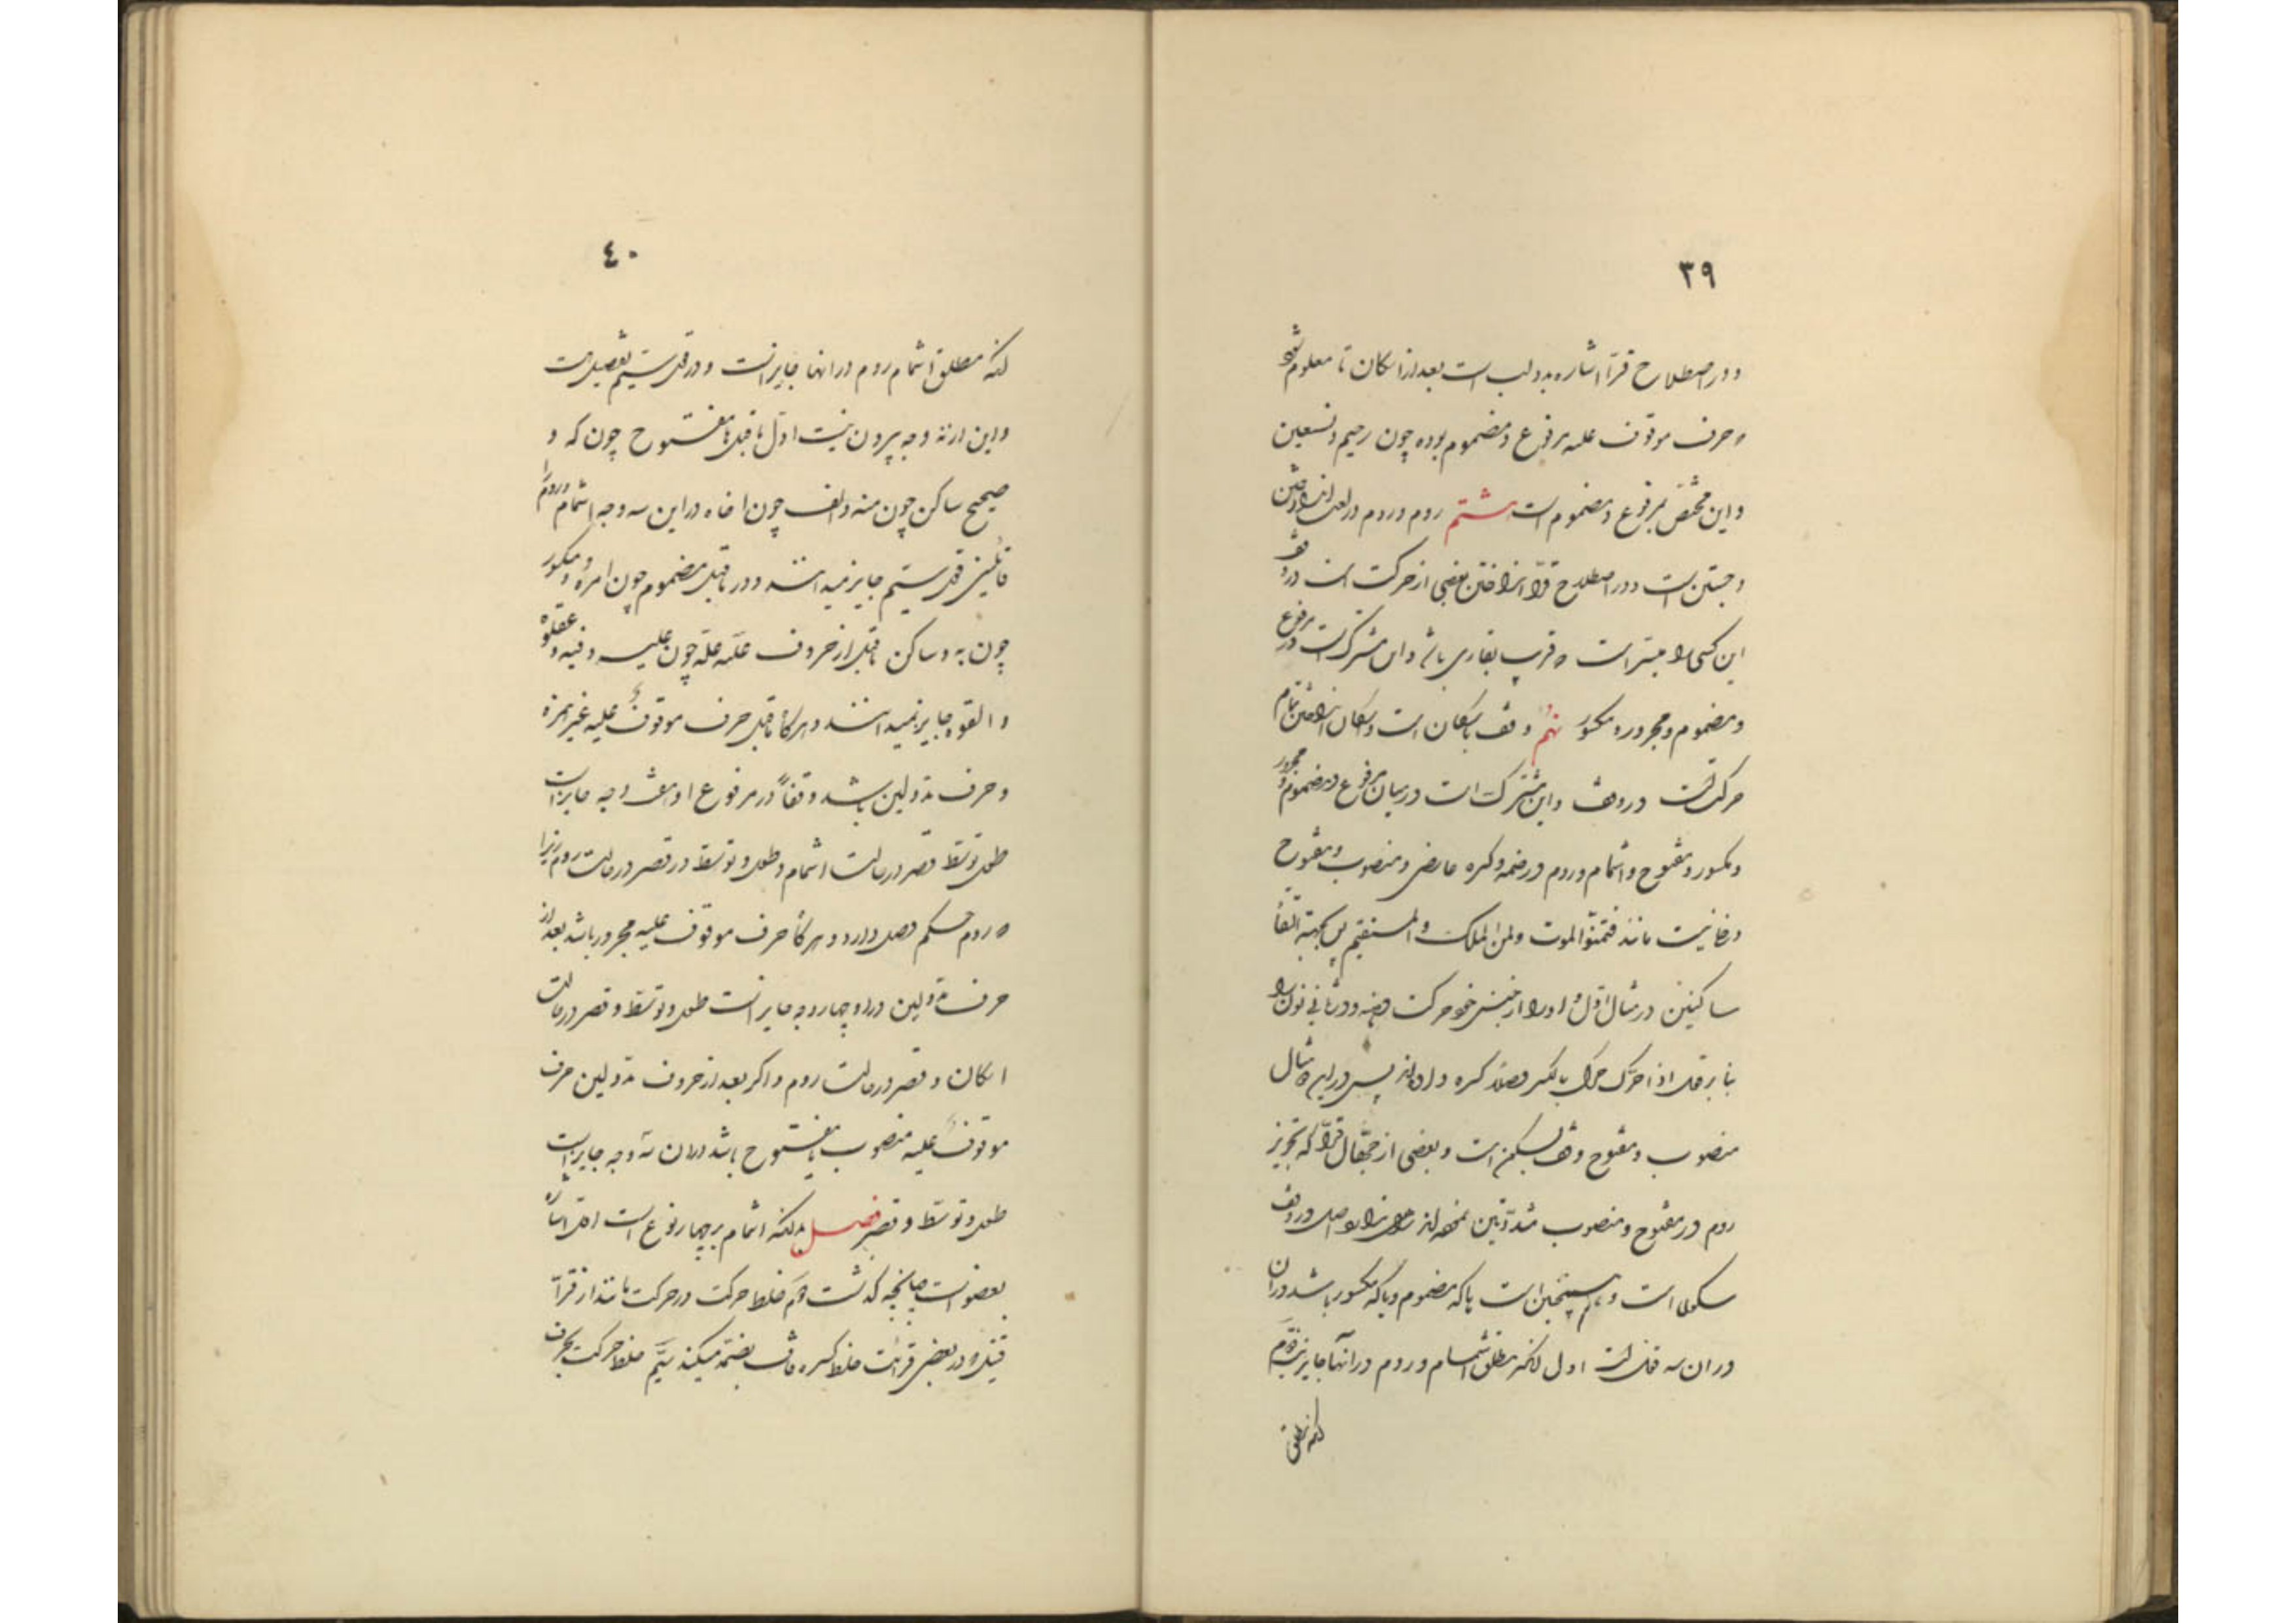 ۳۹
و در اصطلاح قرّا اشاره بدو لب است بعد از اسکان تا معلوم شود
که حرف موقوف علیه مرفوع و مضموم بوده چون رحیم و نستعین
و این مختص بمرفوع و مضموم است هشتم روم و روم در لغت
و جستن است و در اصطلاح قرّا انداختن بعضی از حرکت است در وقف
این کسی را میسّر است که قریب بقاری باشد و آن مشترک است در مرفوع
و مضموم و مجرور و مکسور نهم وقف باسکان است و اسکان انداختن تمام
حرکت است در وقف و این مشترک است در میان مرفوع و مضموم و مجرور
و مکسور و مفتوح و اشمام و روم در ضمه و کسره عارضی و منصوب و مفتوح
مانند فتمنّوا الموت ولمن الملک و المستقیم پس بجهة التقأ
ساکنین در مثال اوّل واو را از جنس خود حرکت و در ثانی نون را
بنا بر قول اذا حرّک حرّک بالکسر کسره داده‌اند پس در این مثال
منصوب و مفتوح وقف بسکون است و بعضی از جهّال قرّا که تجویز
روم در مفتوح و منصوب در وقف
سکون است و همچنین است یا که مضموم و یا که مکسور باشد در آن
در آن سه قول است اول آنکه مطلق اشمام و روم در آنها جایز نیست دوم
آنکه مطلق
٤٠
آنکه مطلق اشمام روم در آنها جایز است و در قول سیّم تفصیل است
و این از نه وجه بیرون نیست اوّل ماقبل ها مفتوح چون که و
صحیح ساکن چون منه و الف چون اخاه در این سه وجه اشمام و روم را
قائلین قول سیّم جایز میدانند و در ماقبل مضموم چون امره و مکسور
چون به و ساکن ماقبل از حروف علّه چون علیه و فیه و عقلوه
و القوه جایز نمیدانند و هرگاه ماقبل حرف موقوف علیه غیر همزه
و حرف مدّ و لین باشد وقفاً در مرفوع او هفت وجه جایز است
طول توسّط قصر در حالت اشمام و طول و توسّط و قصر در حالت روم زیرا
که روم حکم وصل دارد و هرگاه حرف موقوف علیه مجرور باشد بعد از
حرف مدّ و لین در او چهار وجه جایز است طول و توسّط و قصر در حالت
اسکان و قصر در حالت روم و اگر بعد از حروف مدّ و لین حرف
موقوف علیه منصوب یا مفتوح باشد در آن سه وجه جایز است
طول و توسّط و قصر فصل بدانکه اشمام بر چهار نوع است اوّل اشاره
بعضو است چنانچه گذشت دوّم خلط حرکت در حرکت مانند از قرّآ
قیل و در بعضی قرائت خلط کسره قاف بضمّه میکند سیّم خلط حرکت بحرف